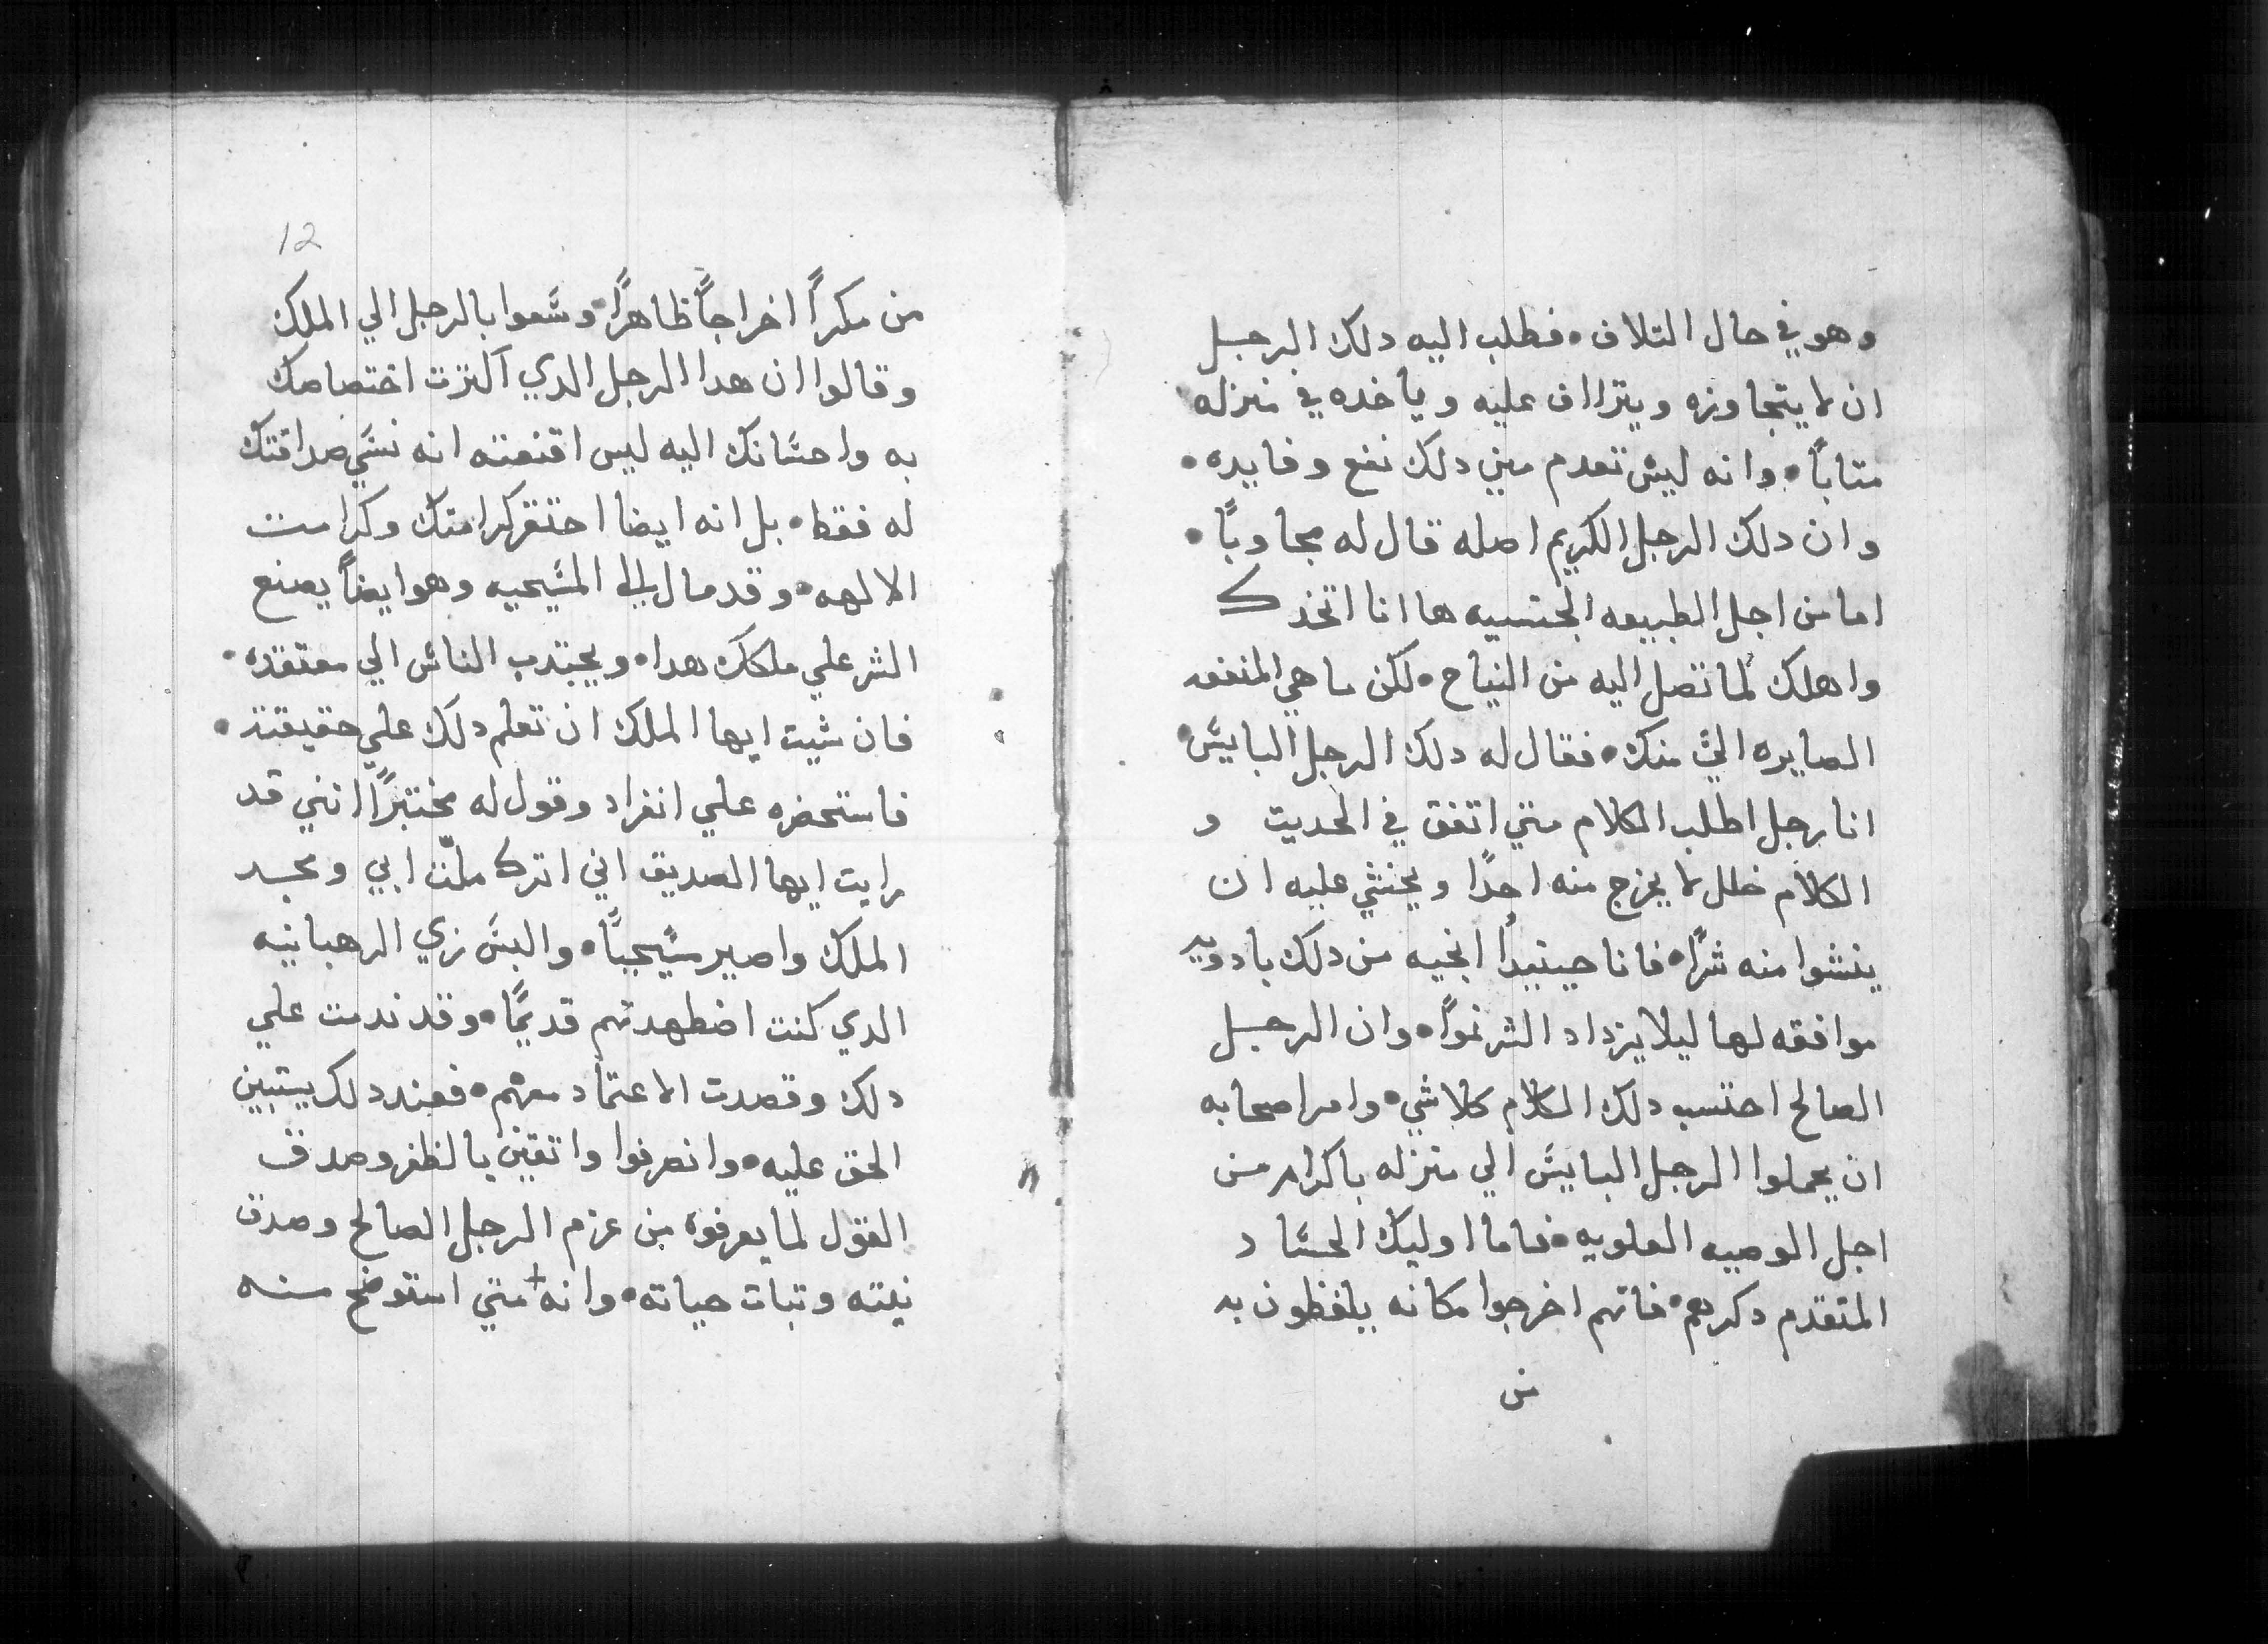 وهو في حال التلاف • فطلب اليه دلك الرجل
ان لا يتجاوزه ويتراااف عليه وياخده في منزله
متاباً • وانه ليس تعدم مني دلك نفع وفايده •
وان دلك الرجل الكريم اصله قال له مجاوباً •
اما من اجل الطبيعه الجنسيه ها انا اتخدك
واهلك لما تصل اليه من النياح • لكن ما هي المنفعه
الصايره اليَّ منك • فقال له دلك الرجل البايس
انا رجل اطلب الكلام متي اتفق في الحديت و
الكلام خلل لا يخرج منه احدًا ويخشي عليه ان
ينشوا منه شرًا • فانا حينيدًا انجيه من دلك بادويه
موافقه لها ليلا يزداد الشر نموًا • وان الرجل
الصالح احتسب دلك الكلام كلاشي • وامر اصحابه
ان يحملوا الرجل البايس الي منزله باكرام من
اجل الوصيه العلويه • فاما اوليك الحساد
المتقدم دكرهم • فانهم اخرجوا مكانه يلفظون به
من
12
من مكراً اخراجاً ظاهراً • وسعوا بالرجل الي الملك
وقالوا ان هدا الرجل الدي اكترت اختصاصك
به واحسانك اليه ليس اقنعته انه نسي صداقتك
له فقط • بل انه ايضا احتقر كرامتك وكرامت
الالهه • وقد مال الي المسيحيه وهو ايضاً يصنع
الشر علي ملكك هدا • ويجتدب الناس الي معتقده •
فان شيت ايها الملك ان تعلم دلك علي حقيقته •
فاستحضره علي انفراد وقول له مختبرًا انني قد
رايت ايها الصديق اني اترك ملّت ابي ومجد
الملك واصير مسيحيًّا • والبس زي الرهبانيه
الدي كنت اضطهدتهم قديمًا • وقد ندمت علي
دلك وقصدت الاعتماد معهم • فعند دلك يستبين
الحق عليه • وانصرفوا واتقين بالظفر وصدق
القول لما يعرفوه من عزم الرجل الصالح وصدق
نيته وتبات حياته • وانه + متي استوضح منه